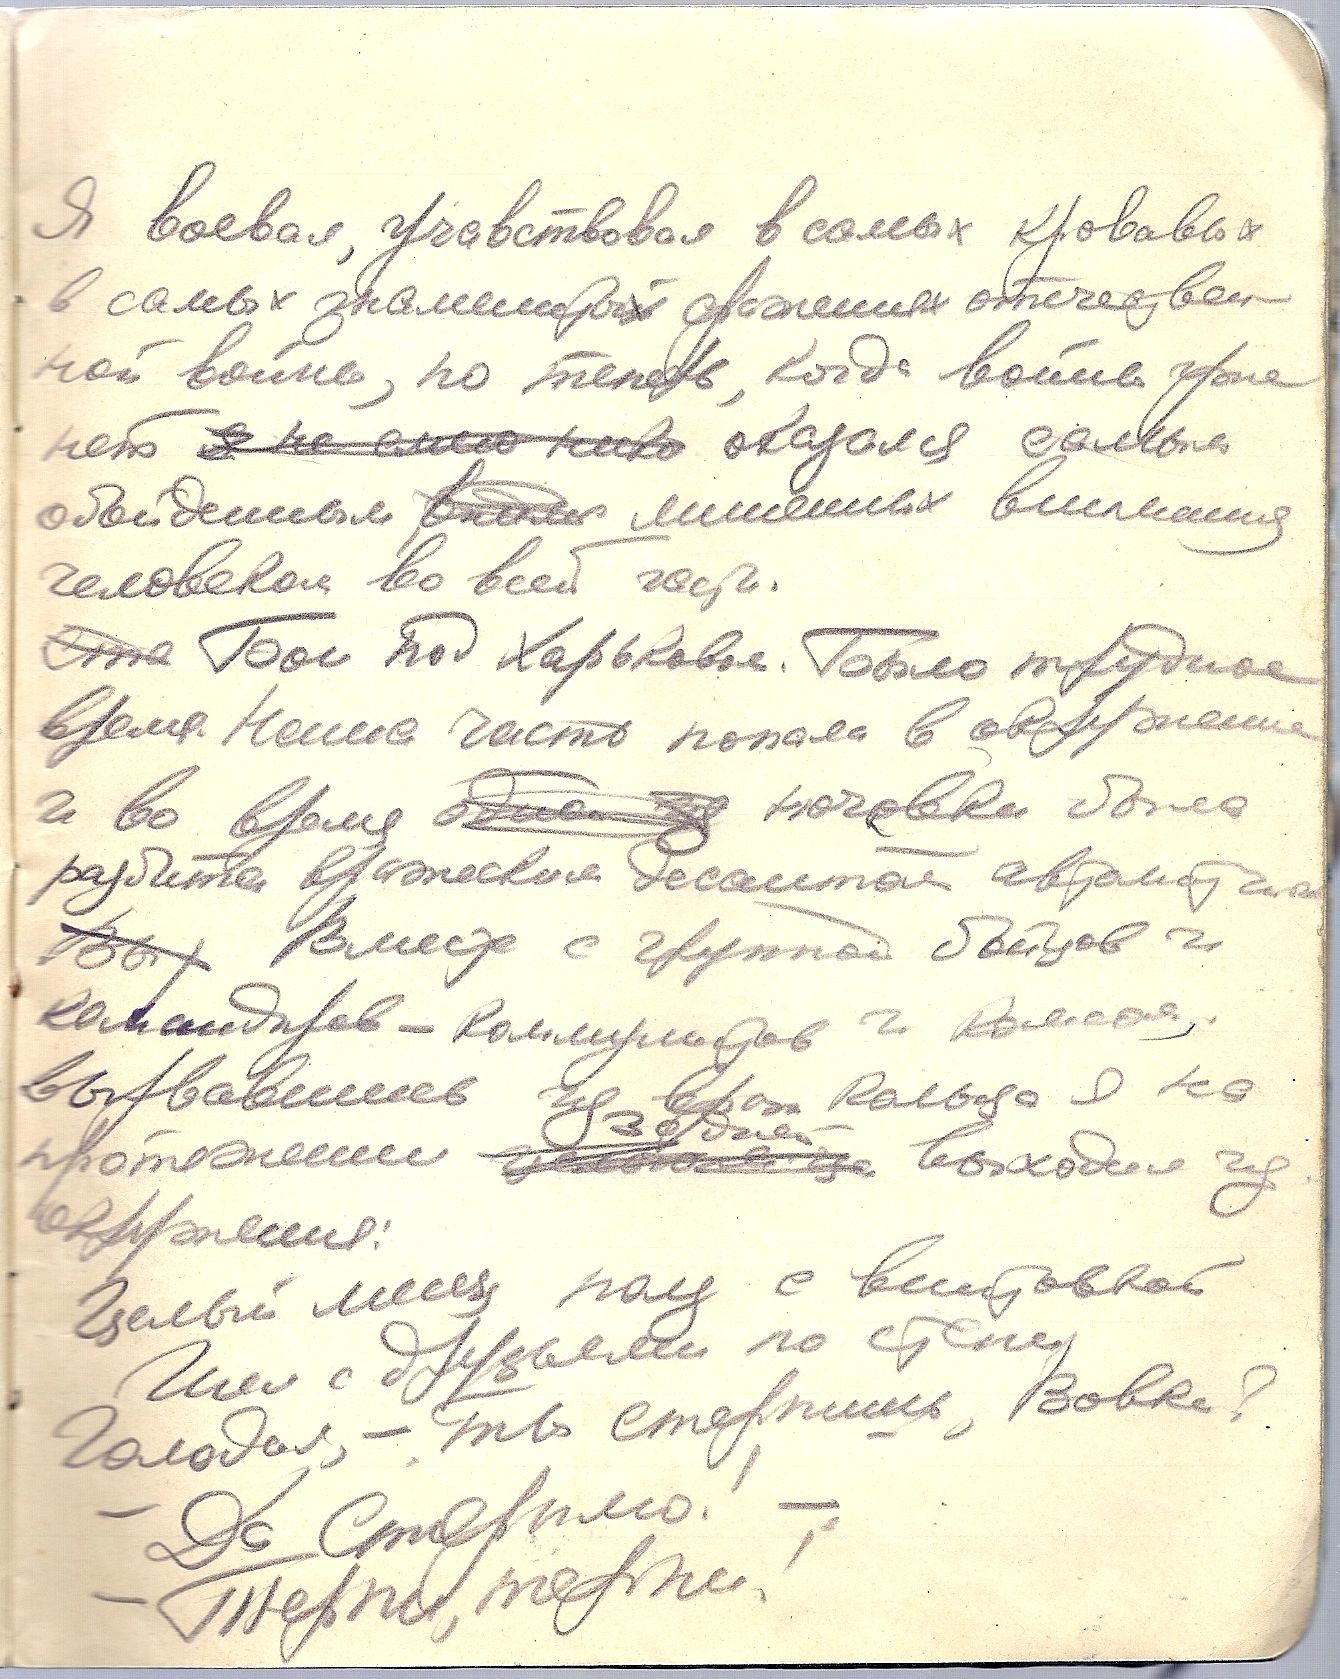 Я воевал, учавствовал в самых кровавых
в самых знаменитых сражениях отечествен
ной войны, но теперь, когда войны уже
нет я не оказался самым
обойденным лишенных внимания
человеком во всей части.
Это Бои под Харьковом. Было трудное
время. Наша часть попала в окружение
и во время одной из ночевки была
разбита вражеским десантом автоматчиков
Выр Вместе с группой бойцов и
командиров – коммунистов и комсом.
вырвавшись из враж кольца я на
протяжении задней выходил из
окружения:
Целый месяц полз с винтовкой
Шел с друзьями по степи
Голодал, – ты стерпишь, Вовка?
– Да Стерплю! –
– Терпи, терпи!